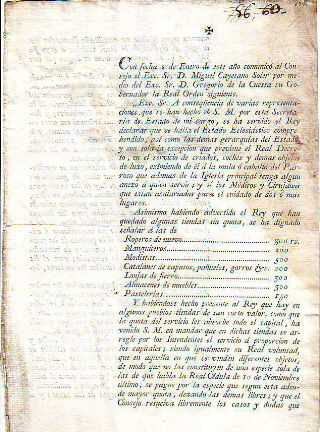 56. 60.
✠
Con fecha 2 de Enero de este año comunicó al Con-
sejo el Exc. Sr. D. Miguel Cayetano Soler por me-
dio del Exc. Sr. D. Gregorio de la Cuesta su Go-
bernador la Real Orden siguiente.
„Exc. Sr. A conseqüencia de varias representa-
ciones que se han hecho á S. M. por esta Secreta-
ría de Estado de mi cargo, se ha servido el Rey
declarar que se halla el Estado Eclesiástico compre-
hendido, así como las demas gerarquías del Estado,
y sin mas excepcion que previene el Real Decre-
to, en el servicio de criados, coches y demas objetos
de luxo, eximiendo de él la mula ó caballo del Pár-
roco que ademas de la Iglesia principal tenga algun
anexo á quien servir; y á los Médicos y Cirujanos
que estan asalariados para el cuidado de dos ó mas
lugares.
Asimismo habiendo advertido el Rey que han
quedado algunas tiendas sin quota, se ha dignado
señalar á las de
Roperos de nuevo 300 rs.
Manguiteros 100
Modistas 500
Catalanes de zapatos, pañuelos, gorros &c. 200
Lonjas de fierro 300
Almacenes de muebles 300
Pastelerías 150
Y habiéndose hecho presente al Rey que hay en
algunos pueblos tiendas de tan corto valor, como que
la quota del servicio les absorbe todo el capital, ha
venido S. M. en mandar que en dichas tiendas se ar-
regle por los Intendentes el servicio á proporcion de
los capitales; siendo igualmente su Real voluntad,
que en aquella en que se venden diferentes objetos,
de modo que no las constituyen de una especie sola de
las de que habla la Real Cédula de 10 de Noviembre
último, se pague por la especie que segun esta adeu-
de mayor quota, dexando las demas libres; y que el
Consejo resuelva libremente los casos y dudas que